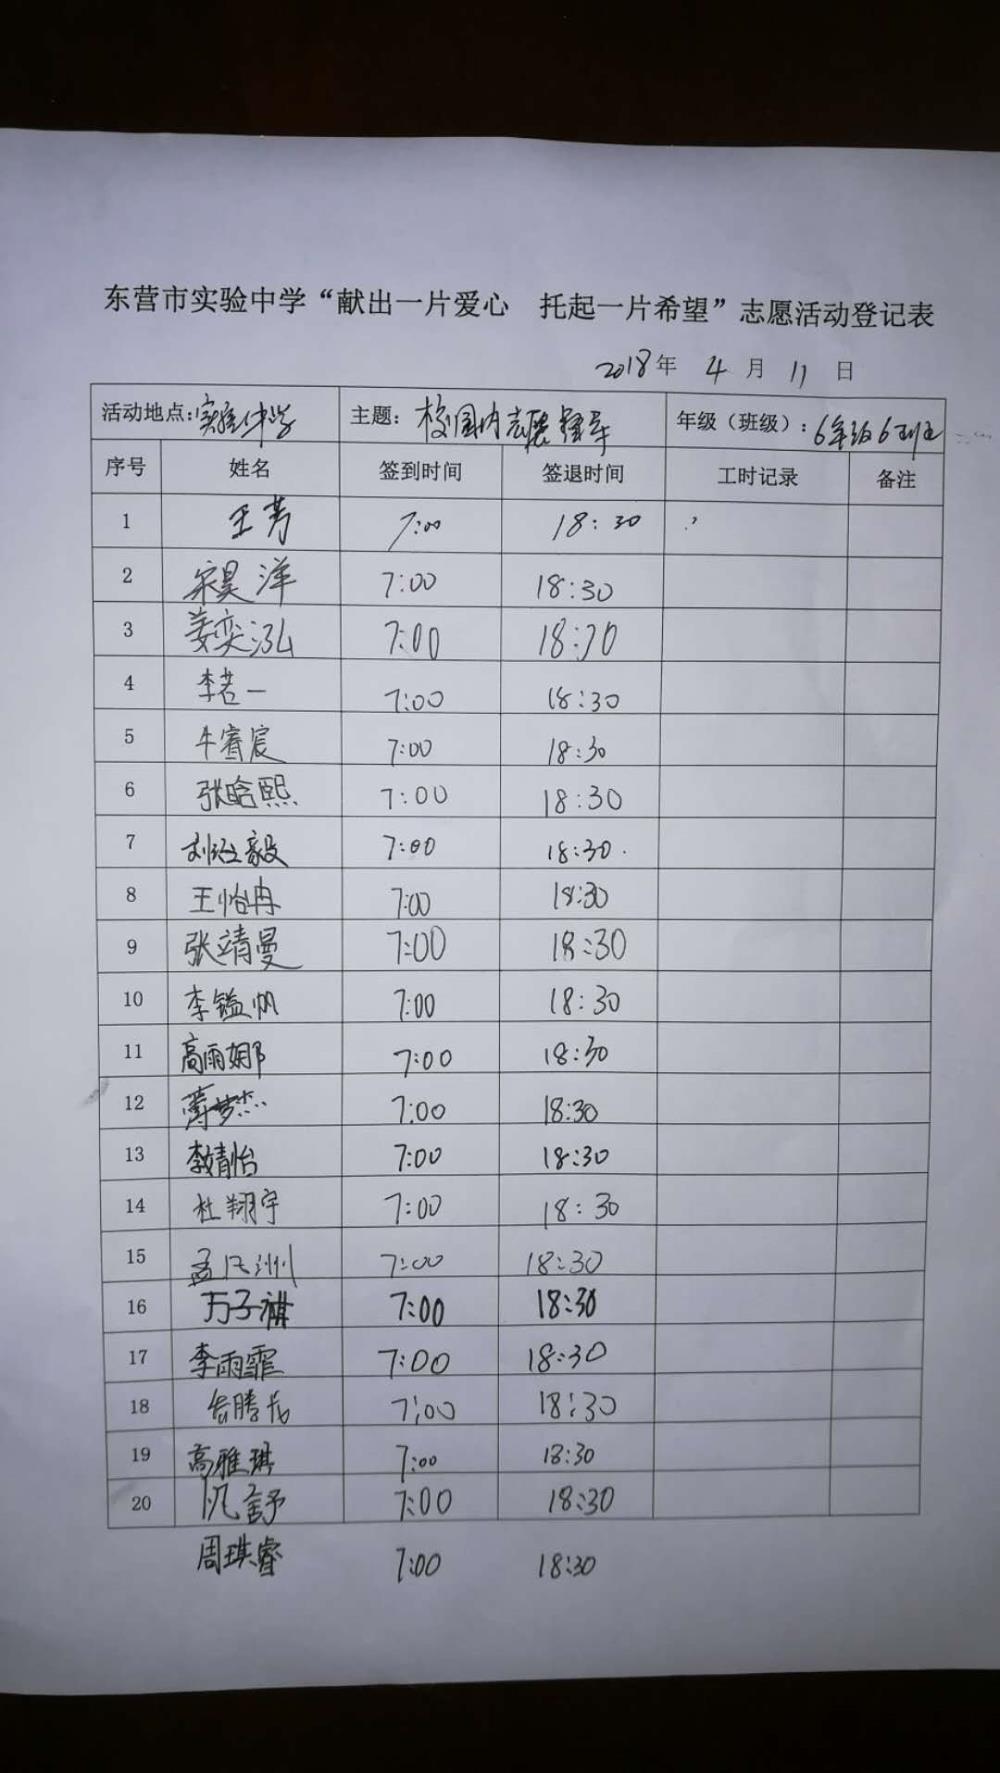 东营市实验中学“献出一片爱心 托起一片希望”志愿活动登记表
2018年 4 月 11 日
活动地点：实验中学 主题：校园内志愿 年级（班级）：6年级6班
序号 姓名 签到时间 签退时间 工时记录 备注
1 王芳 7:00 18:30
2 宋昊洋 7:00 18:30
3 姜奕泓 7:00 18:30
4 李若一 7:00 18:30
5 牛睿宸 7:00 18:30
6 张晗熙 7:00 18:30
7 刘 毅 7:00 18:30
8 王怡冉 7:00 18:30
9 张靖曼 7:00 18:30
10 李镒帆 7:00 18:30
11 高雨娜 7:00 18:30
12 7:00 18:30
13 李婧怡 7:00 18:30
14 杜翔宇 7:00 18:30
15 孟 洲 7:00 18:30
16 万子祺 7:00 18:30
17 李雨霏 7:00 18:30
18 腾 7:00 18:30
19 高雅琪 7:00 18:30
20 舒 7:00 18:30
周琪睿 7:00 18:30